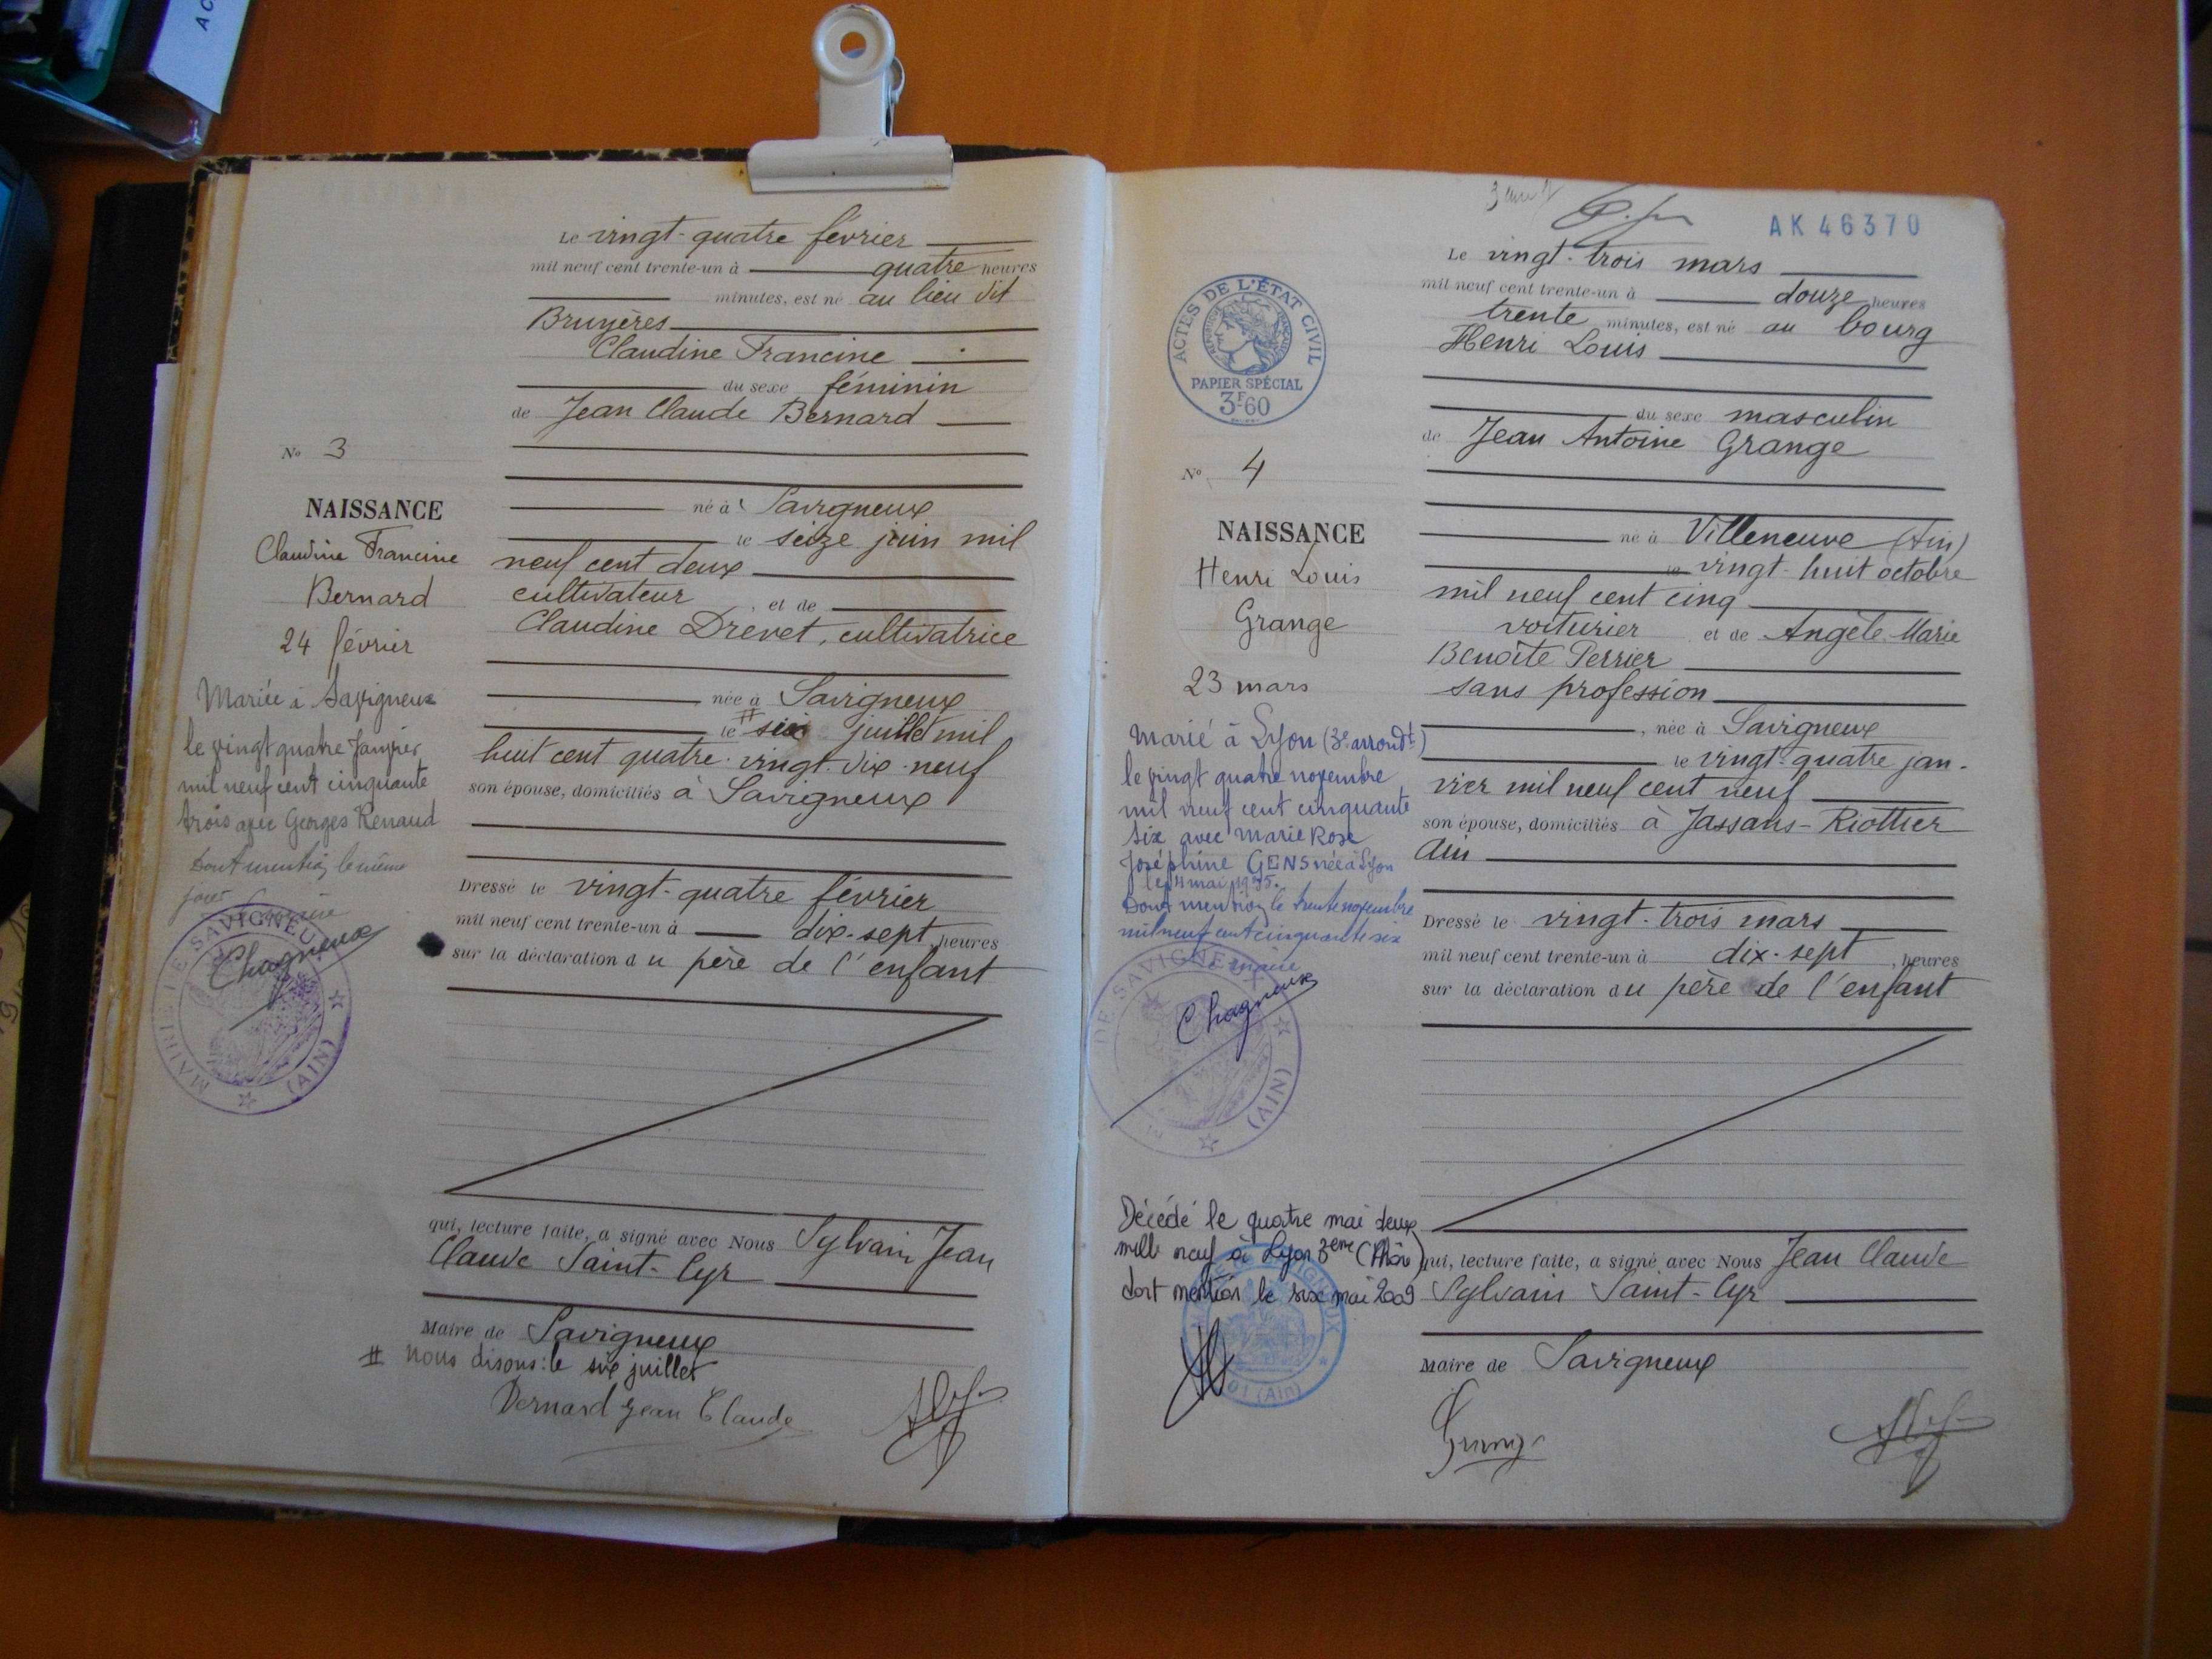 AC
Le vingt-quatre février
mil neuf cent trente-un à quatre heures
minutes, est né au lieu dit
Bruyères
Claudine Francine
du sexe féminin
de Jean Claude Bernard
né à Savigneux
le seize juin mil
neuf cent deux
cultivateur, et de
Claudine Drevet, cultivatrice
née à Savigneux
le # six juillet mil
huit cent quatre-vingt-dix-neuf
son épouse, domiciliés à Savigneux
Dressé le vingt-quatre février
mil neuf cent trente-un à dix-sept heures
sur la déclaration du père de l'enfant
qui, lecture faite, a signé avec Nous Sylvain Jean
Claude Saint-Cyr
Maire de Savigneux
# nous disons: le six juillet
Bernard Jean Claude
No 3
NAISSANCE
Claudine Francine
Bernard
24 février
Mariée à Savigneux
le vingt quatre Janvier
mil neuf cent cinquante
trois avec Georges Renaud
Dont mention le même
jour
MAIRIE DE SAVIGNEUX (AIN)
Chagneux
AK 46370
Le vingt-trois mars
mil neuf cent trente-un à douze heures
trente minutes, est né au bourg
Henri Louis
du sexe masculin
de Jean Antoine Grange
né à Villeneuve (Ain)
le vingt-huit octobre
mil neuf cent cinq
voiturier et de Angèle Marie
Benoîte Perrier
sans profession
, née à Savigneux
le vingt-quatre jan-
vier mil neuf cent neuf
son épouse, domiciliés à Jassans-Riottier
Ain
Dressé le vingt-trois mars
mil neuf cent trente-un à dix-sept, heures
sur la déclaration du père de l'enfant
qui, lecture faite, a signé avec Nous Jean Claude
Sylvain Saint-Cyr
Maire de Savigneux
Grange
ACTES DE L'ÉTAT CIVIL
PAPIER SPÉCIAL
3F60
No 4
NAISSANCE
Henri Louis
Grange
23 mars
Marié à Lyon (3e arrondt)
le vingt quatre novembre
mil neuf cent cinquante
six avec Marie Rose
Joséphine GENS née à Lyon
Dont mention le trente novembre
mil neuf cent cinquante six
Le maire
DE SAVIGNEUX (AIN)
Chagneux
Décédé le quatre mai deux
mille neuf à Lyon 3eme (Rhône)
dont mention le six mai 2009
01 (Ain)